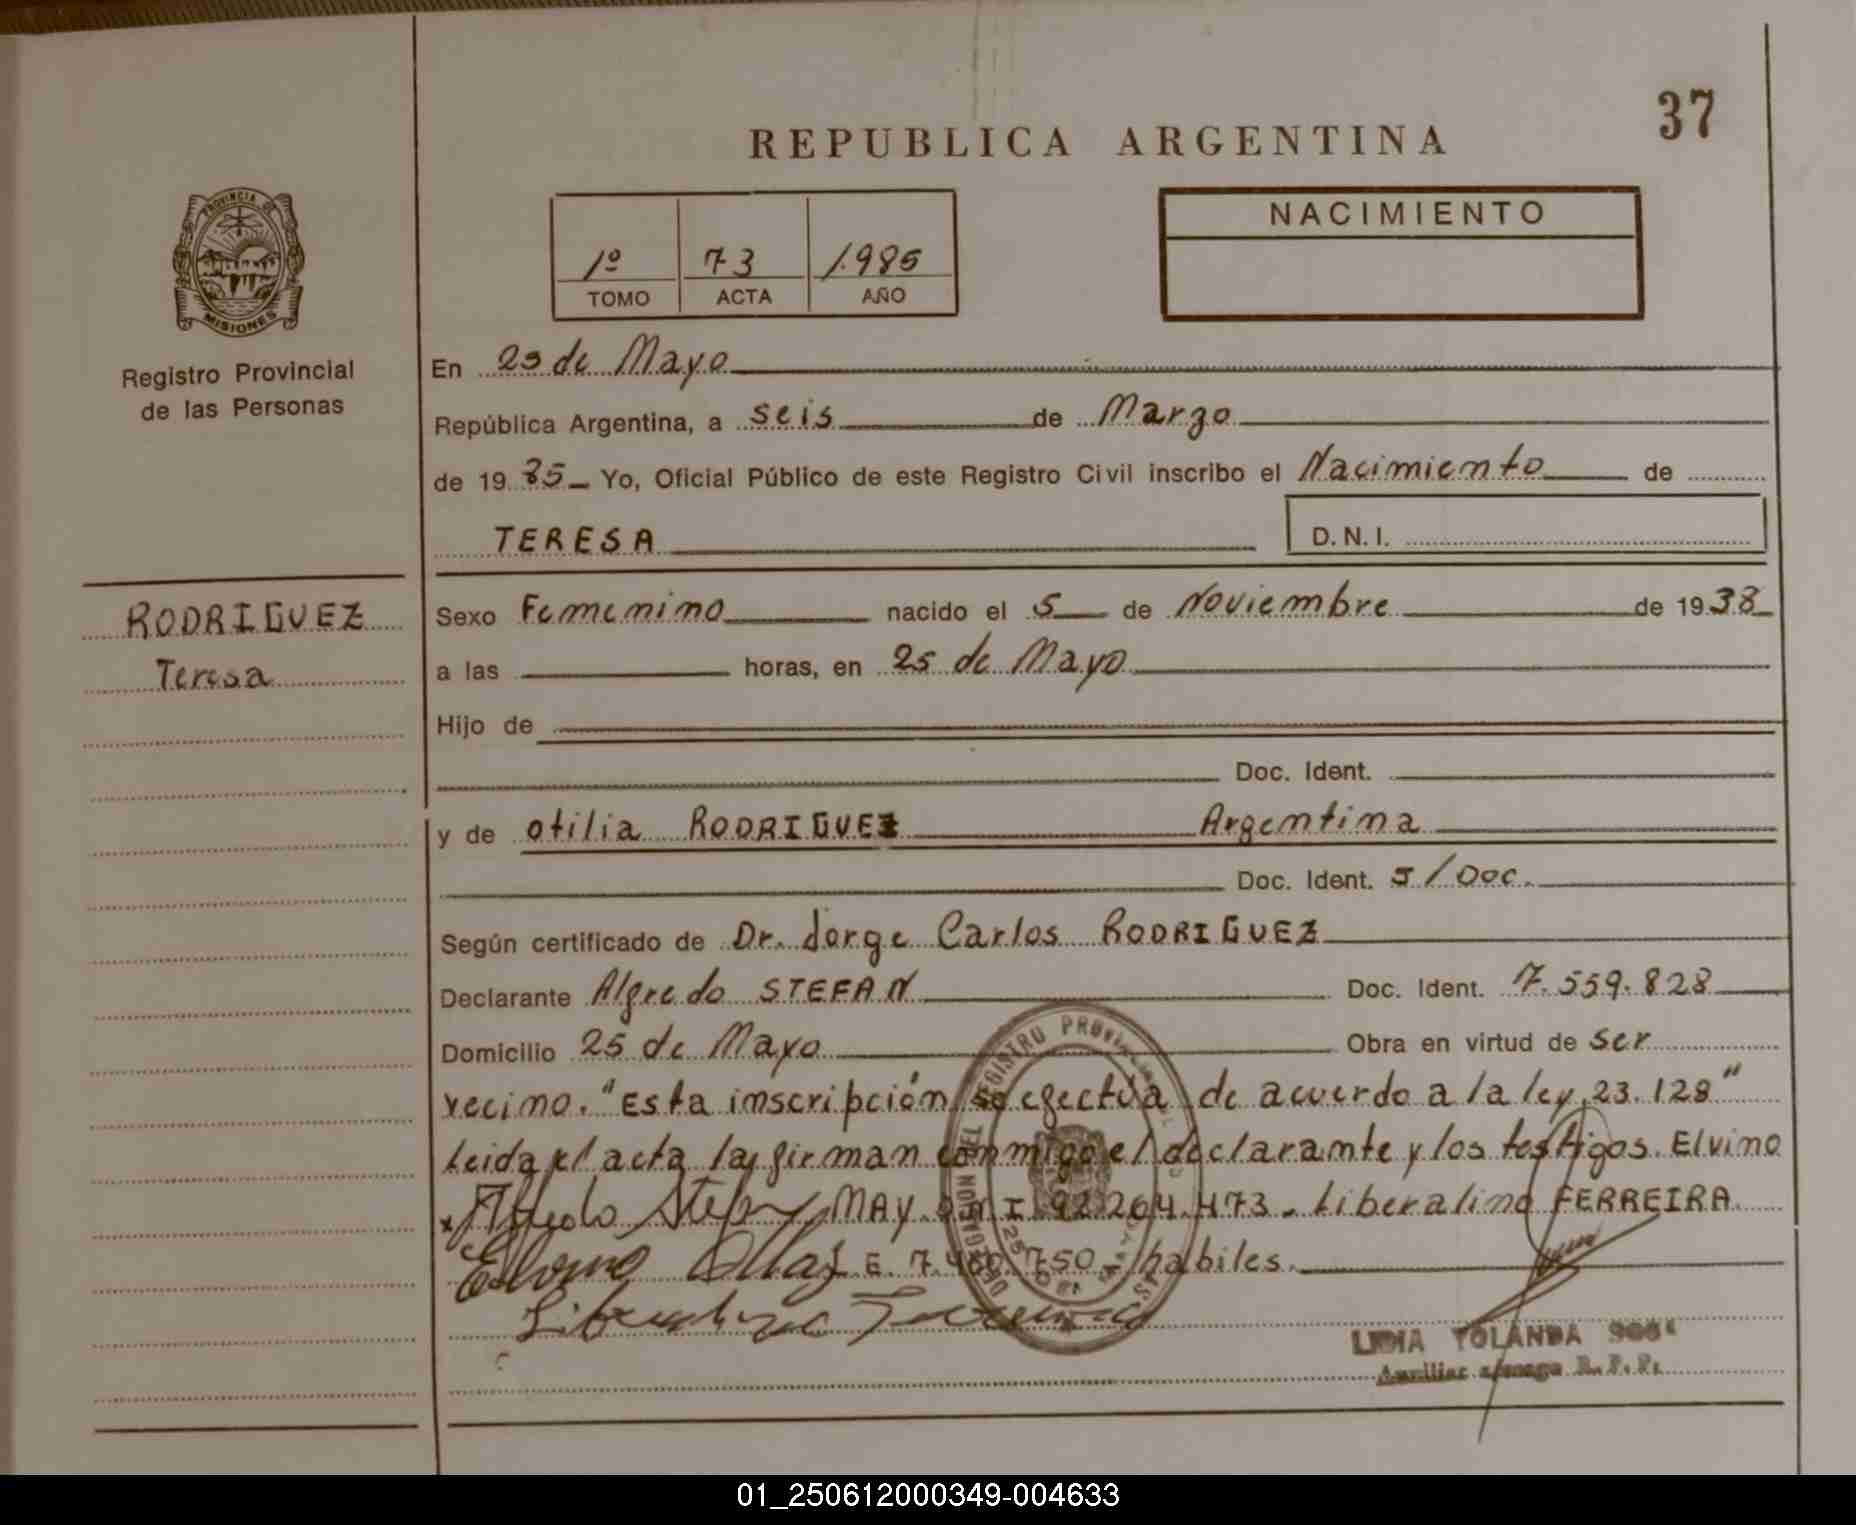 37
REPUBLICA ARGENTINA
PROVINCIA DE
MISIONES
Registro Provincial
de las Personas
1º 73 1.985
TOMO ACTA AÑO
NACIMIENTO
En 25 de Mayo
República Argentina, a seis de Marzo
de 19 85 Yo, Oficial Público de este Registro Civil inscribo el Nacimiento de
TERESA D.N.I.
RODRIGUEZ
Teresa
Sexo Femenino nacido el 5 de Noviembre de 19 38
a las horas, en 25 de Mayo
Hijo de
Doc. Ident.
y de otilia RODRIGUEZ Argentina
Doc. Ident. S/Doc.
Según certificado de Dr. Jorge Carlos RODRIGUEZ
Declarante Alfredo STEFAN Doc. Ident. 7.559.828
Domicilio 25 de Mayo Obra en virtud de ser
vecino. "Esta inscripción se efectúa de acuerdo a la ley 23.128"
Leida el acta la firman conmigo el declarante y los testigos. Elvino
Alfredo Stefan MAY. D.N.I 92.264.473. Liberalino FERREIRA
Elvino E. 7.460.750 habiles.
Liberalino Ferreira
REGISTRO PROVINCIAL
25 DE MAYO
LIDIA YOLANDA
Auxiliar R.P.P.
01_250612000349-004633